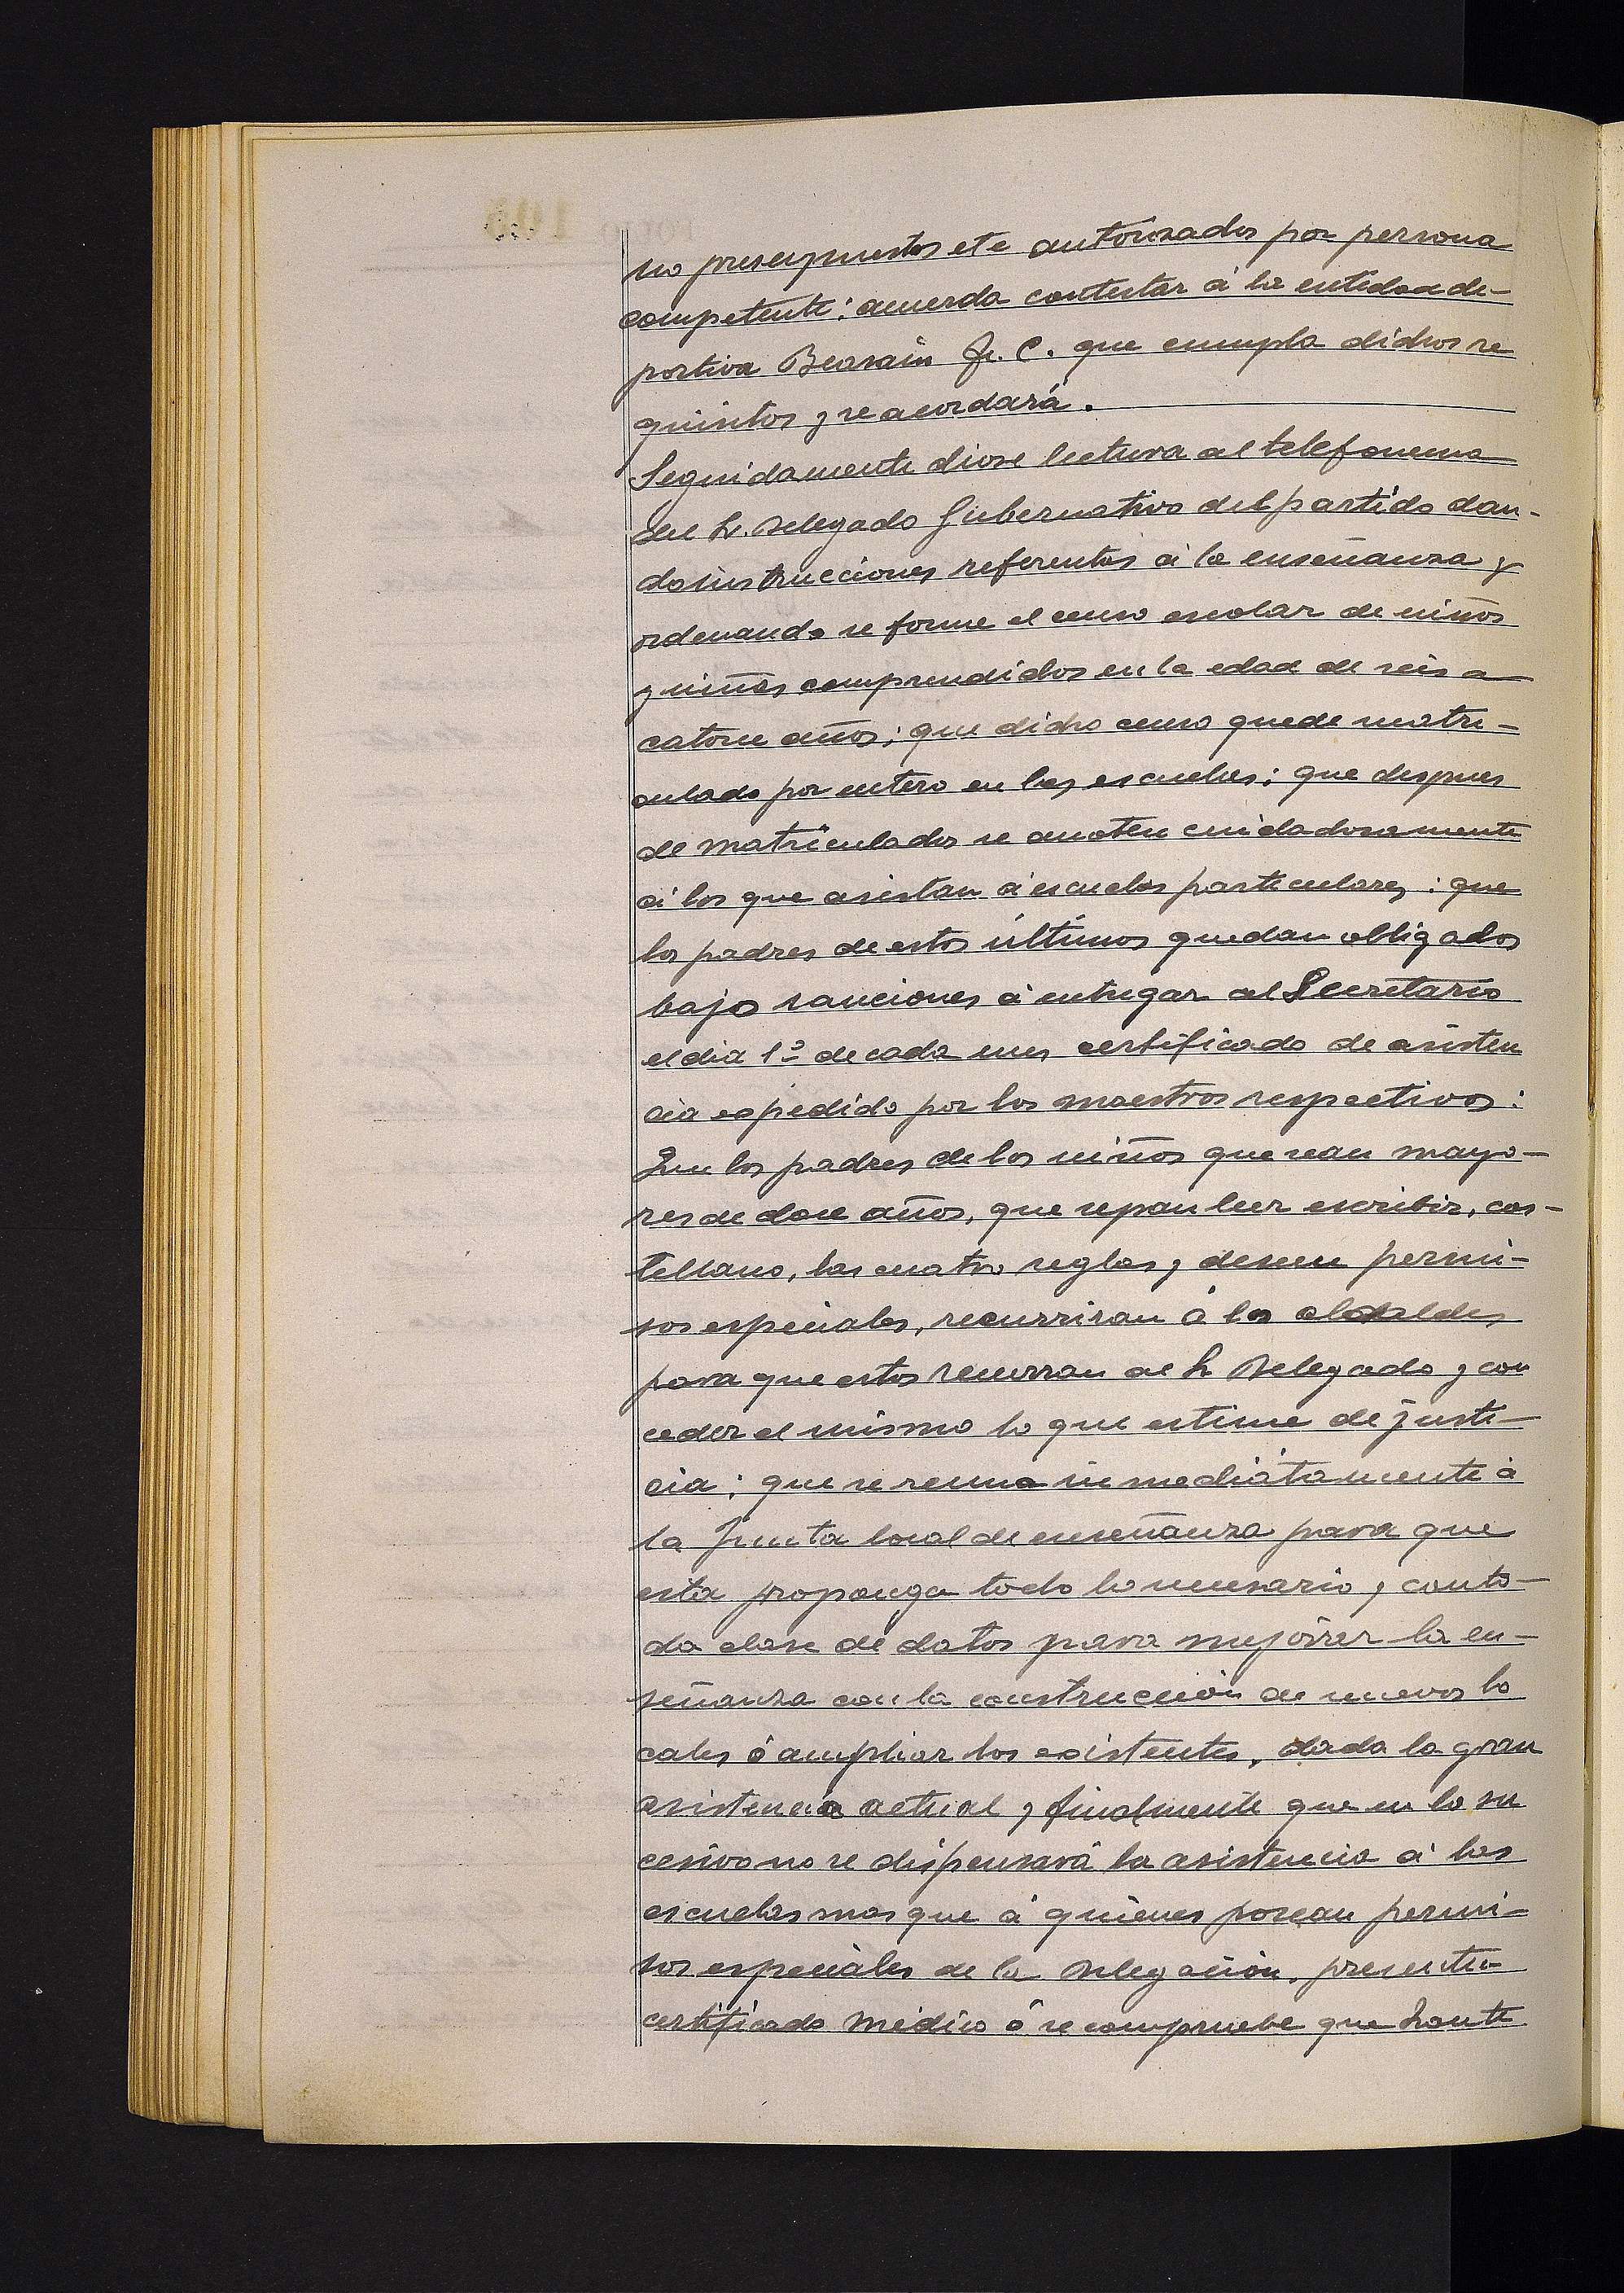 no presupuestos ete autorizados por persona
competente: acuerda contestar á la entidad de-
portiva Beasain F. C. que cumpla dichos re
quisitos y se acordará.
Seguidamente diose lectura al telefonema
del Sr. Delegado Gubernativo del partido dan-
do instrucciones referentes á la enseñanza y
ordenando se forme el censo escolar de niños
y niñas comprendidos en la edad de seis a
catorce años; que dicho censo quede matri-
culado por entero en las escuelas; que despues
de matriculados se anoten cuidadosamente
á los que asistan á escuelas particulares; que
los padres de estos últimos quedan obligados
bajo sanciones á entregar al Secretario
el dia 1º de cada mes certificado de asisten
cia expedido por los maestros respectivos:
Que los padres de los niños que sean mayo-
res de doce años, que sepan leer escribir, cas-
tellano, las cuatro reglas y deseen permi-
sos especiales, recurriran á los alcaldes
para que estos recurran al Sr Delegado y con
ceder el mismo lo que estime de justi-
cia; que se reuna inmediatamente á
la Junta local de enseñanza para que
esta proponga todo lo necesario y con to-
da clase de datos para mejorar la en-
señanza con la construcción de nuevos lo
cales ó ampliar los existentes, dada la gran
asistencia actual y finalmente que en lo su
cesivo no se dispensará la asistencia á las
escuelas mas que á quienes posean permi-
sos especiales de la Delegación, presente
certificado médico ó se compruebe que